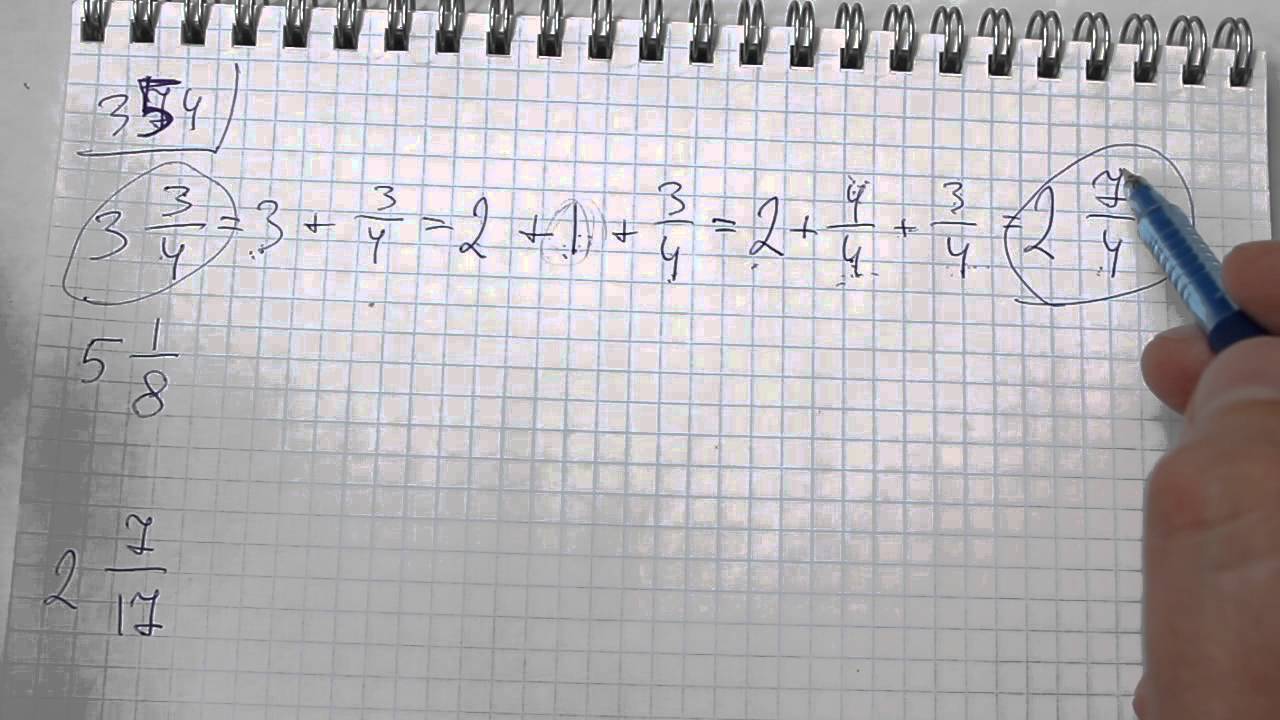 354
3 3/4 = 3 + 3/4 = 2 + 1 + 3/4 = 2 + 4/4 + 3/4 = 2 7/4
5 1/8
2 7/17